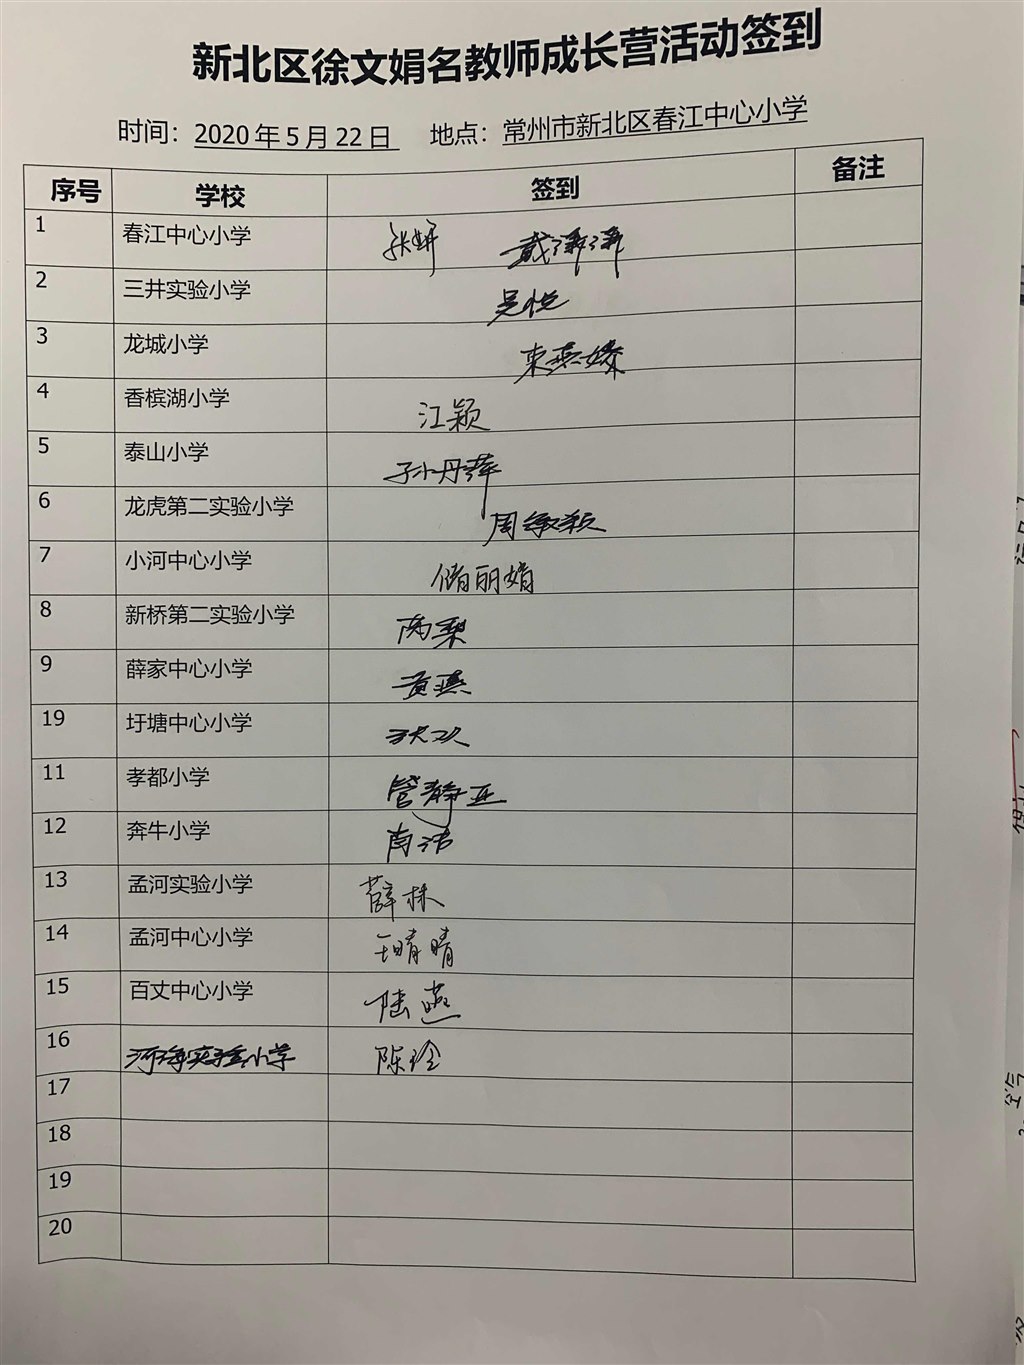 新北区徐文娟名教师成长营活动签到
时间：2020年5月22日 地点：常州市新北区春江中心小学
序号 学校 签到 备注
1 春江中心小学 张妍 戴泽泽
2 三井实验小学 吴悦
3 龙城小学 束燕
4 香槟湖小学 江颖
5 泰山小学 孙丹萍
6 龙虎第二实验小学 周敏颖
7 小河中心小学 储丽娟
8 新桥第二实验小学 梨
9 薛家中心小学 黄燕
19 圩塘中心小学
11 孝都小学 管静亚
12 奔牛小学 洁
13 孟河实验小学 薛林
14 孟河中心小学 王晴晴
15 百丈中心小学 陆燕
16 河海实验小学 陈玲
17
18
19
20